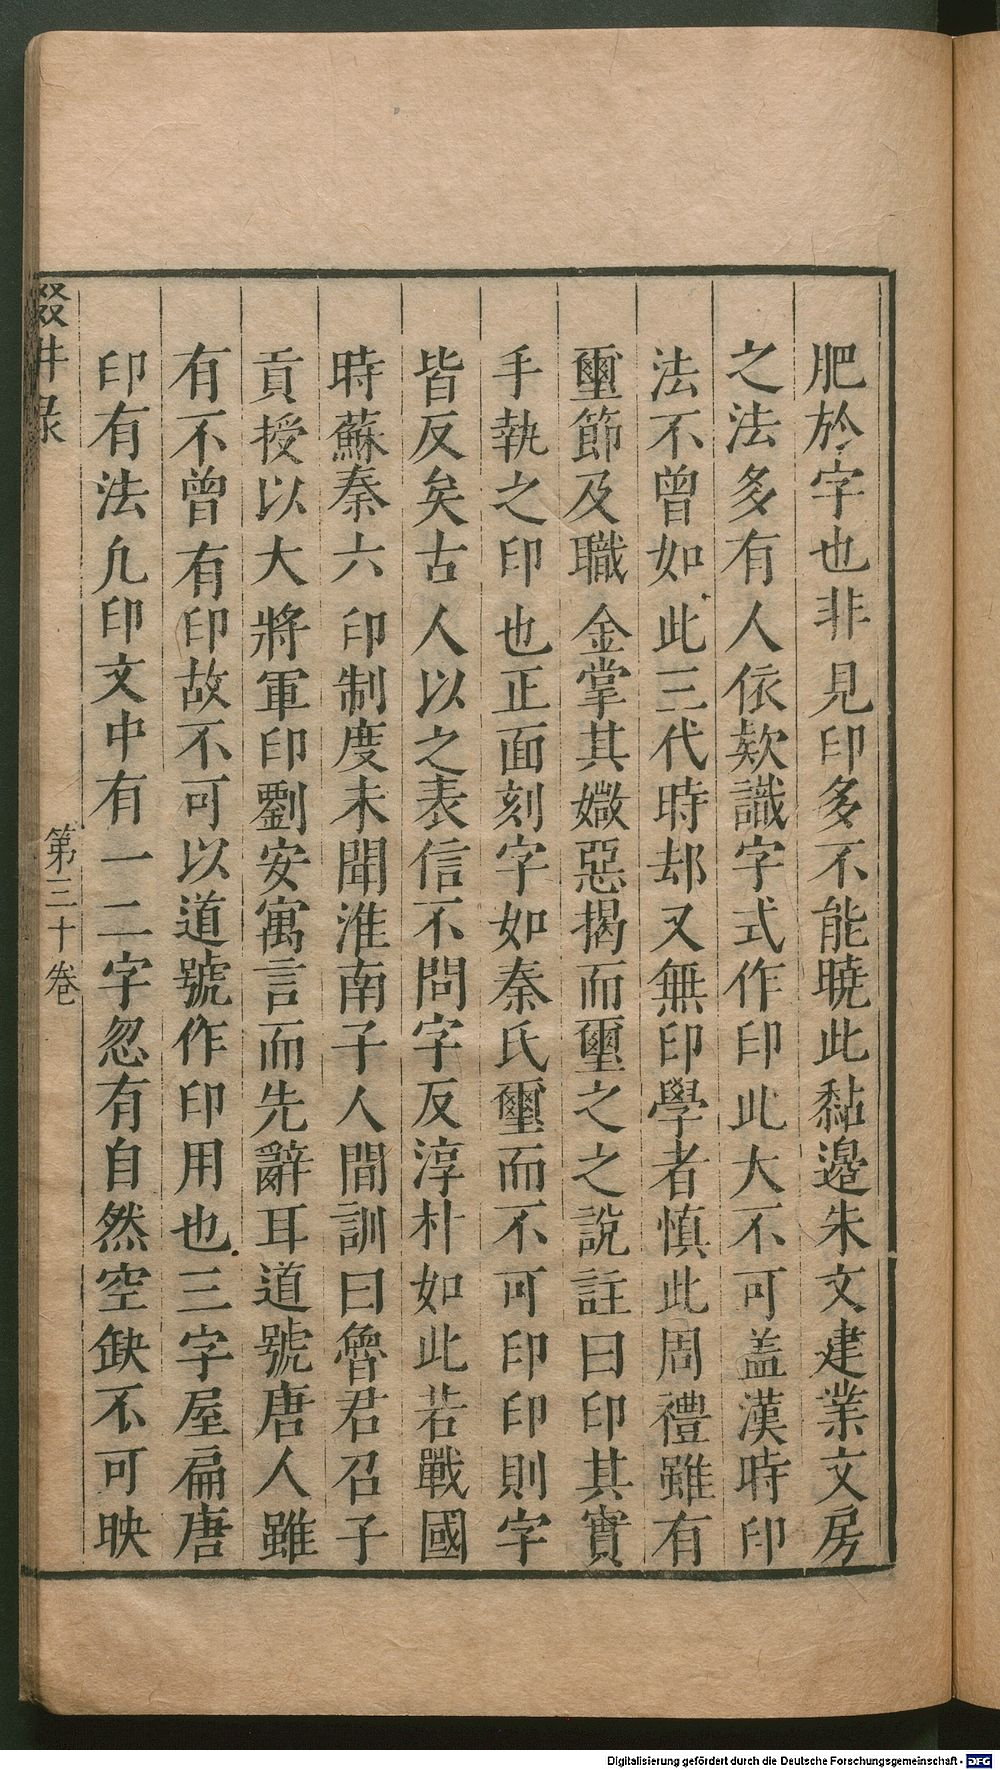 肥於字也非見印多不能曉此黏邉朱文建業文房
之法多有人依欵識字式作印此大不可盖漢時印
法不曾如此三代時却又無印學者慎此周禮雖有
璽節及職金掌其媺惡揭而璽之之說註曰印其實
手執之印也正面刻字如秦氏璽而不可印印則字
皆反矣古人以之表信不問字反淳朴如此若戰國
時蘇秦六印制度未聞淮南子人間訓曰魯君召子
貢授以大將軍印劉安寓言而先辭耳道號唐人雖
有不曾有印故不可以道號作印用也三字屋扁唐
印有法凣印文中有一二字忽有自然空缺不可映
第三十卷
Digitalisierung gefördert durch die Deutsche Forschungsgemeinschaft - DFG